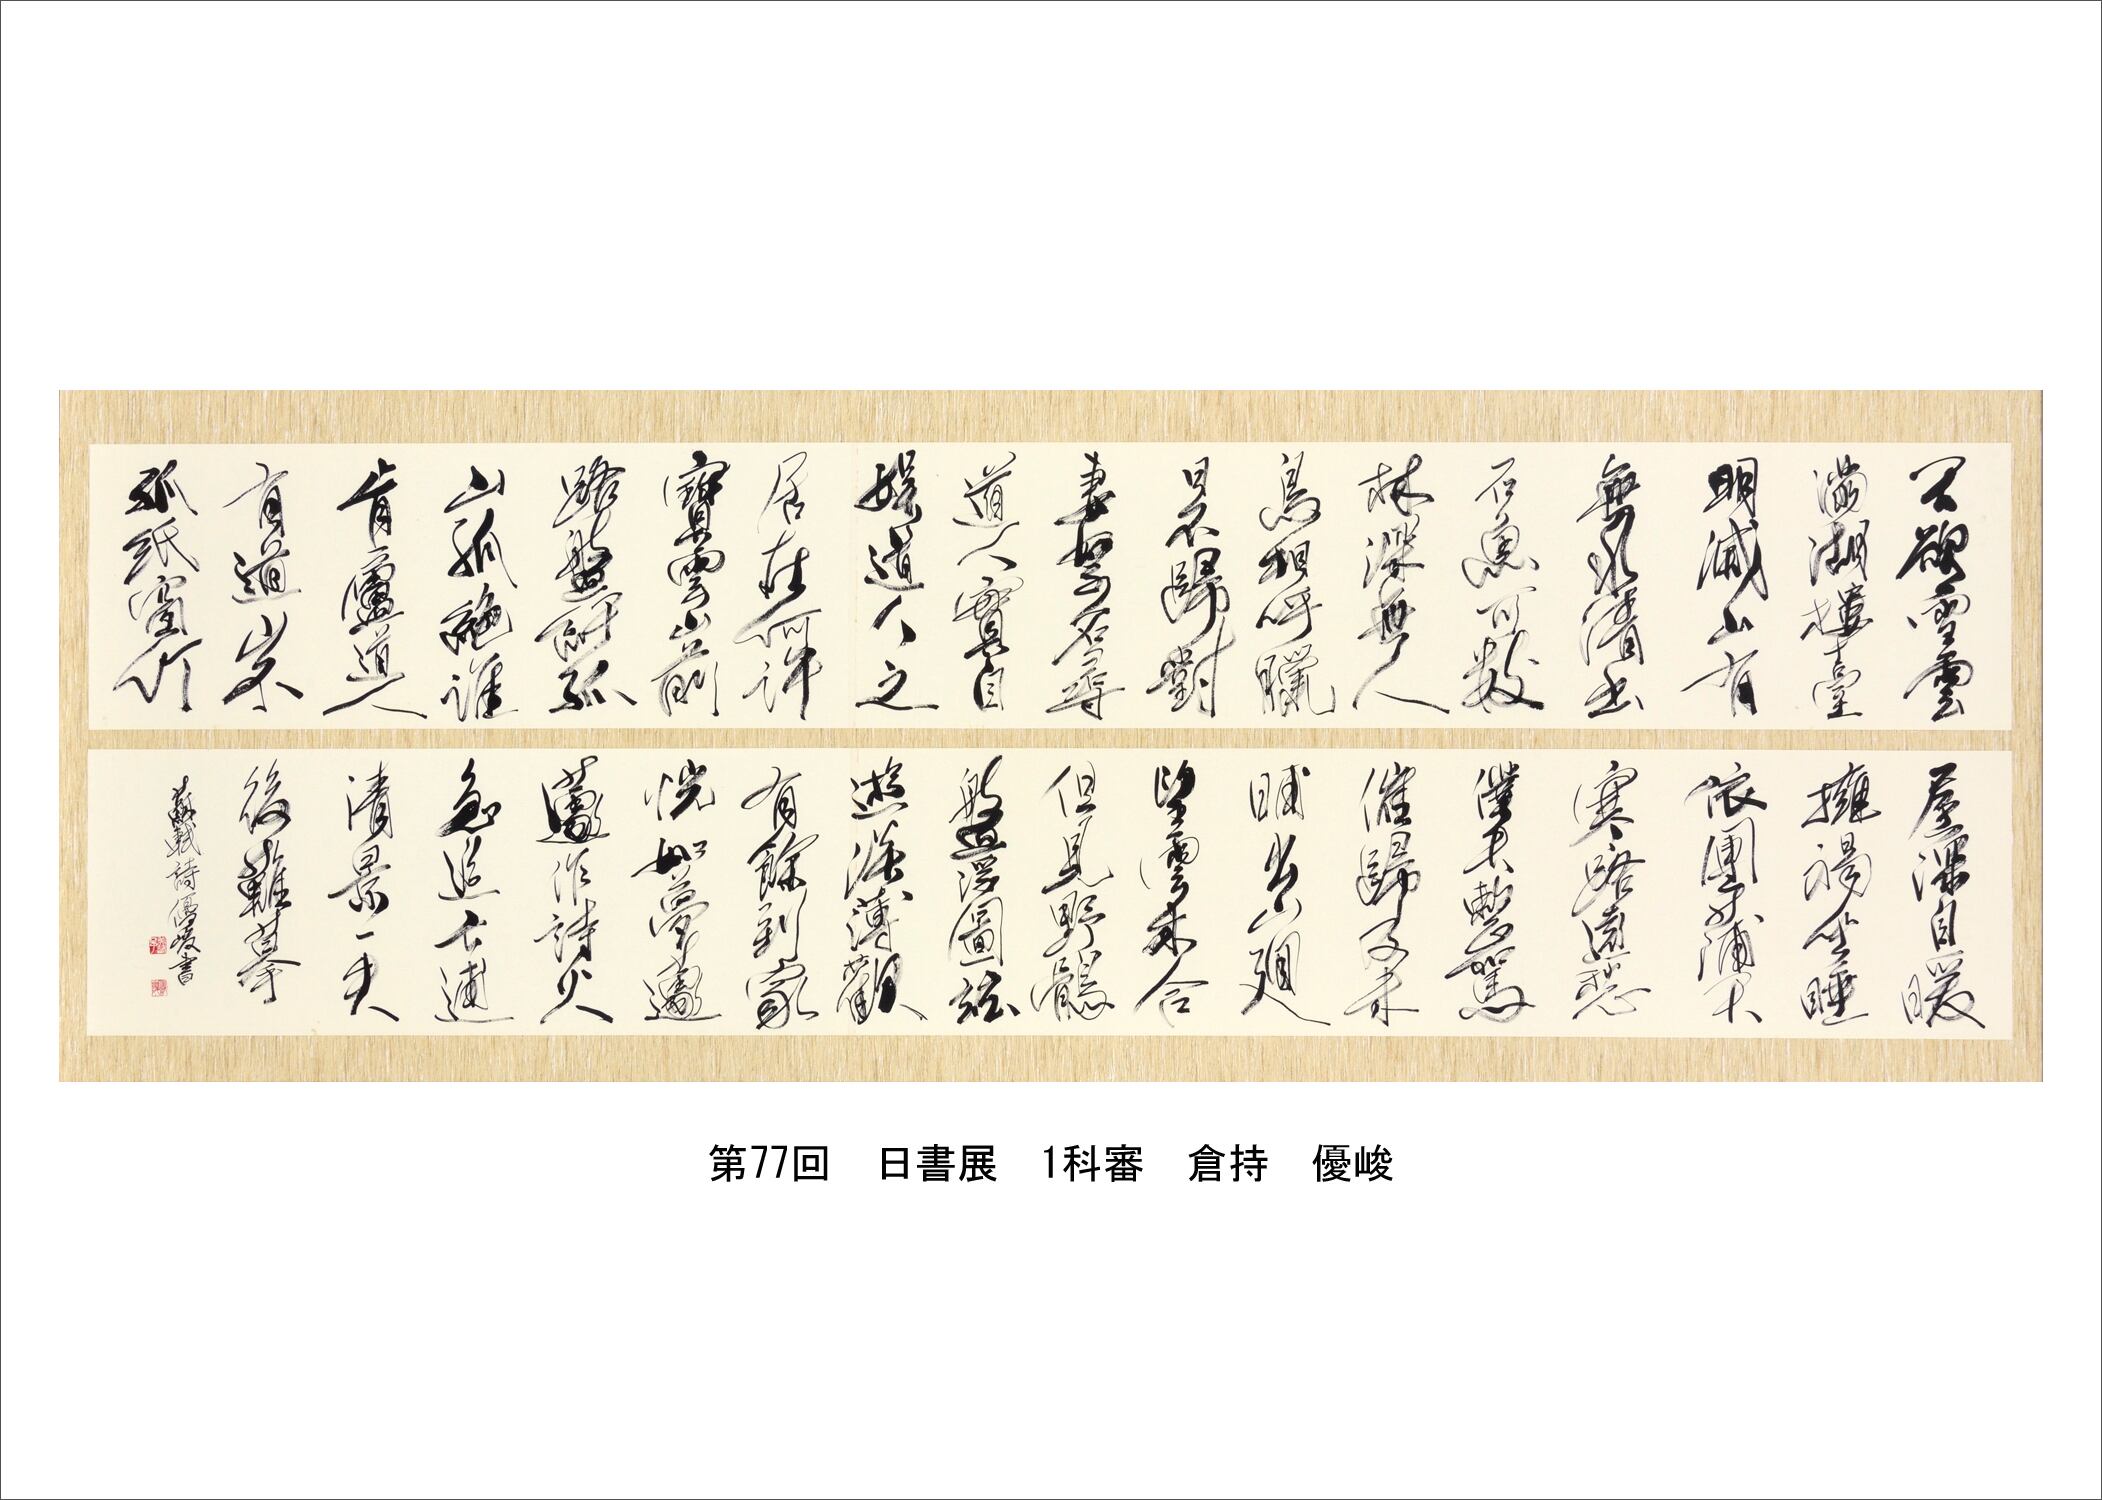 天欲雪雲
滿湖樓臺
明滅山有
無水清出
石魚可數
林深無人
鳥相呼臘
日不歸對
妻孥名尋
道人實自
娯道人之
居在何許
寶雲山前
路盤紆孤
山孤絶誰
肯廬道人
有道山不
孤紙窗竹
屋深自暖
擁褐坐睡
依團蒲天
寒路遠愁
僕夫整駕
催歸及未
晡出山廻
望雲木合
但見野鶻
盤浮圖茲
遊淡薄歡
有餘到家
恍如夢蘧
蘧作詩火
急追亡逋
清景一失
後難摹
蘇軾詩優峻書
第77回　日書展　1科審　倉持　優峻